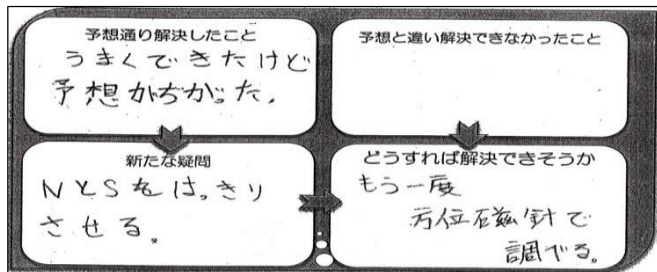 予想通り解決したこと
うまくできたけど
予想がちがった.
予想と違い解決できなかったこと
新たな疑問
NとSをはっきり
させる。
どうすれば解決できそうか
もう一度
方位磁針で
調べる。